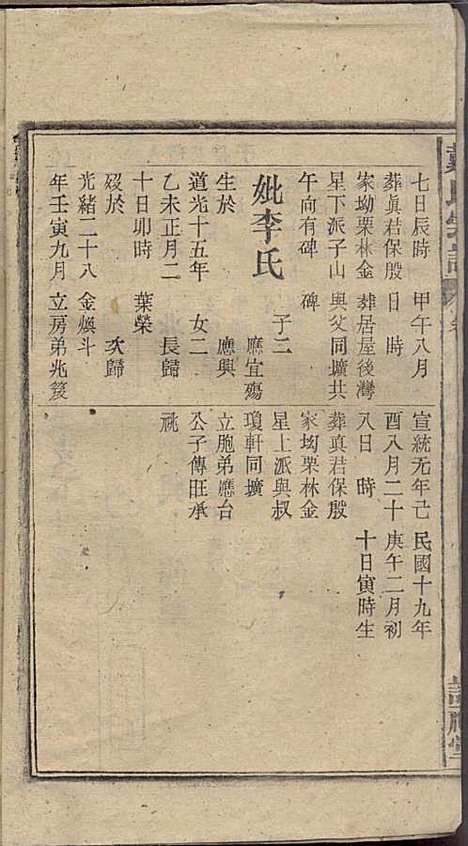 氏宗譜
七日辰時 甲午八月
葬眞君保殷 日 時
家坳栗林金 葬居屋後灣
星下派子山 與父同壙共
午向有碑 碑
妣李氏 子二
應宜殤
生於 應興
道光十五年 女二
乙未正月二 長歸
十日卯時 葉榮
歿於 次歸
光緒二十八 金煥斗
年壬寅九月 立房弟兆篯
宣統元年己 民國十九年
酉八月二十 庚午二月初
八日 時 十日寅時生
葬真君保殷
家坳栗林金
星上派與叔
瓊軒同壙
立胞弟應台
公子傳旺承
祧